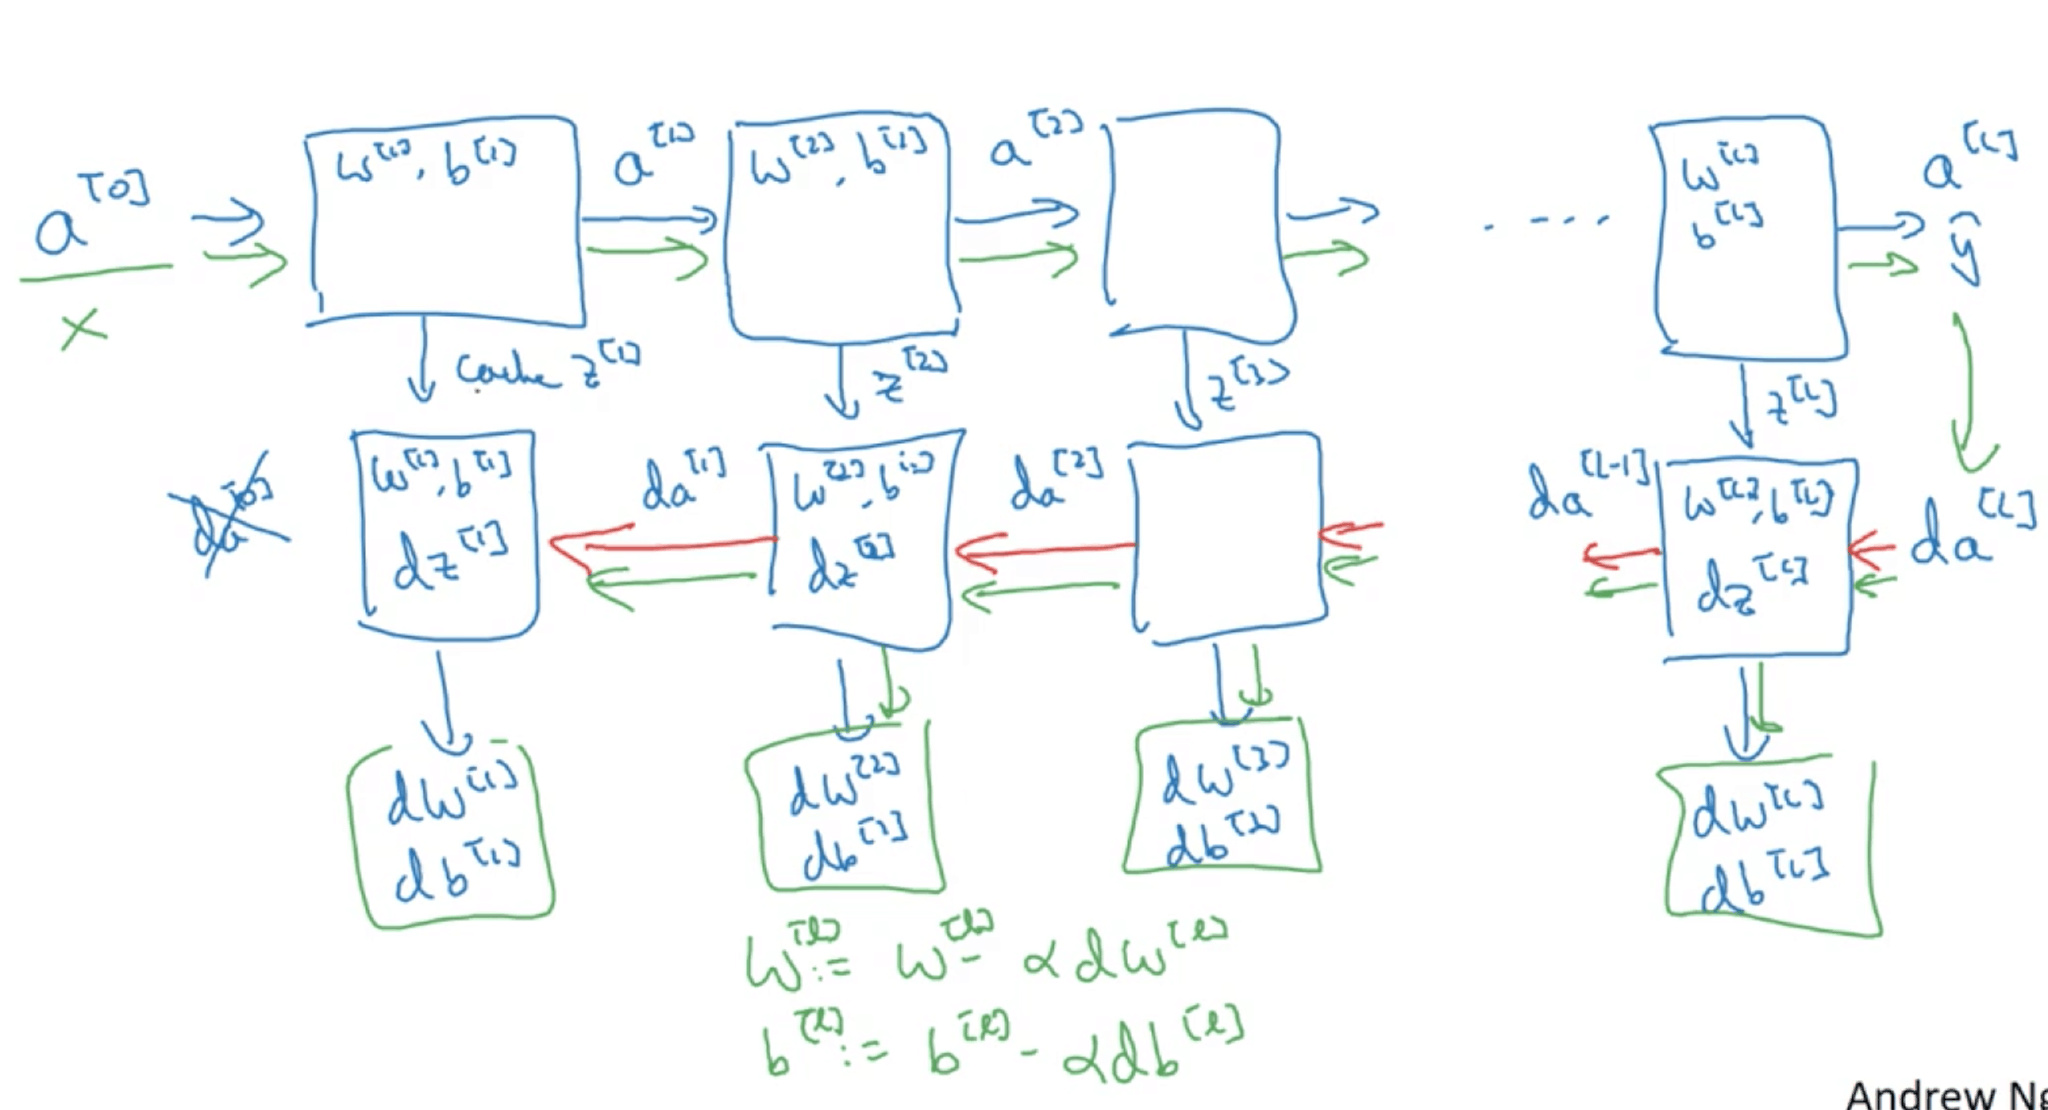 a^[0]
x
w^[1], b^[1]
a^[1]
w^[2], b^[2]
a^[2]
....
w^[L]
b^[L]
a^[L]
ŷ
cache z^[1]
z^[2]
z^[3]
z^[L]
da^[0]
w^[1], b^[1]
dz^[1]
da^[1]
w^[2], b^[2]
dz^[2]
da^[2]
da^[L-1]
w^[L], b^[L]
dz^[L]
da^[L]
dw^[1]
db^[1]
dw^[2]
db^[2]
dw^[3]
dw^[L]
db^[L]
w^[l] := w^[l] - α dw^[l]
b^[l] := b^[l] - α db^[l]
Andrew Ng